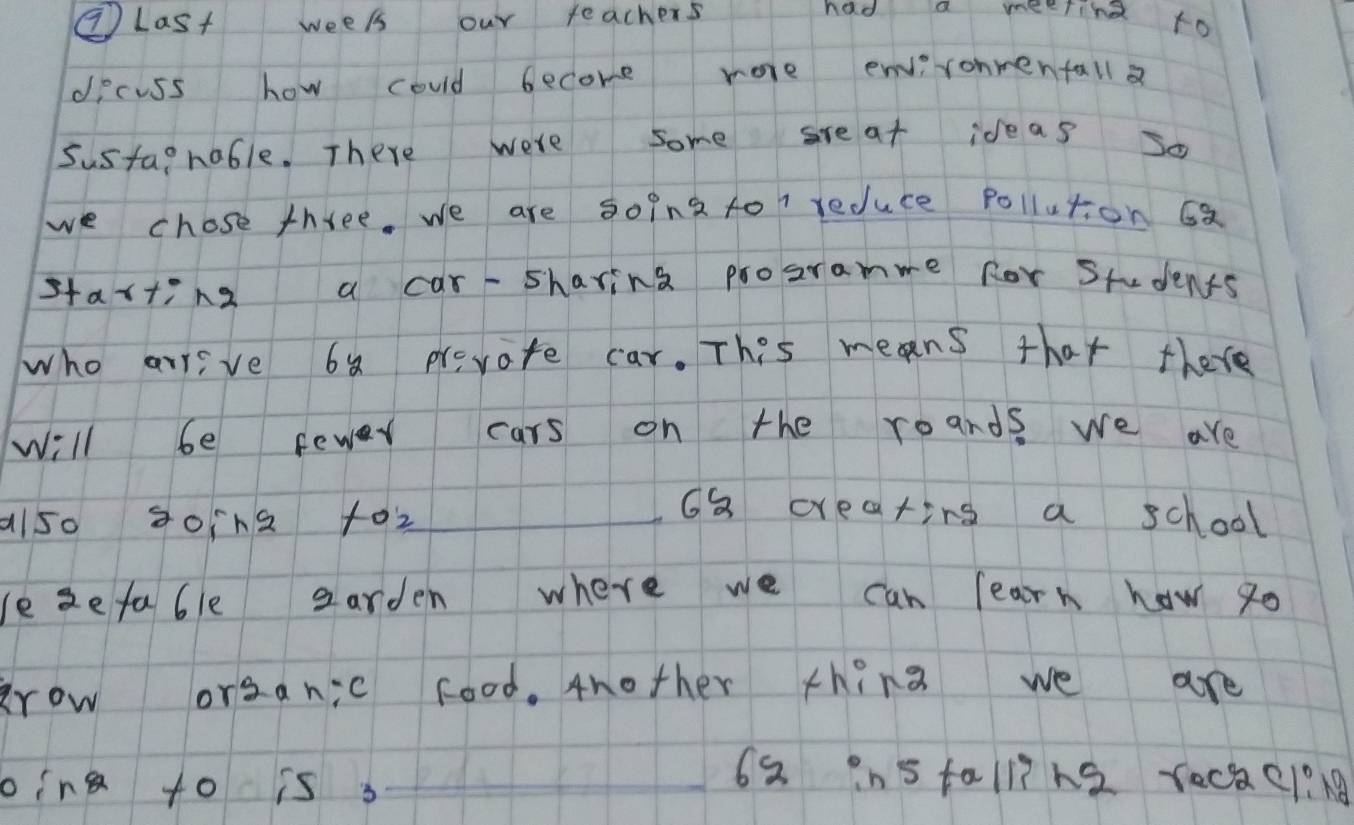 ① Last week our teachers had a meeting to
dicuss how could become more environmentally
sustainable. There were some great ideas so
we chose three. We are going to 1 reduce Pollution by
starting a car-sharing programme for students
who arrive by private car. This means that there
will be fewer cars on the roands. We are
also going to 2 by creating a school
vegetable garden where we can learn how to
grow organic food. Another thing we are
oing to is 3 by installing recycling